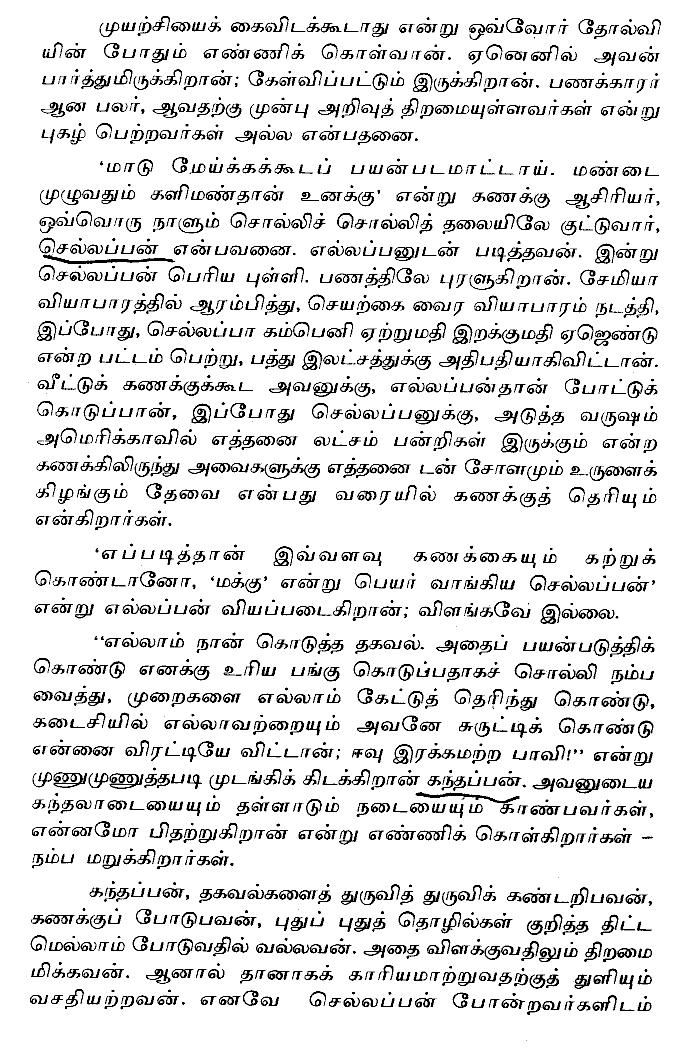 முயற்சியைக் கைவிடக்கூடாது என்று ஒவ்வோர் தோல்வி
யின் போதும் எண்ணிக் கொள்வான். ஏனெனில் அவன்
பார்த்துமிருக்கிறான்; கேள்விப்பட்டும் இருக்கிறான். பணக்காரர்
ஆன பலர், ஆவதற்கு முன்பு அறிவுத் திறமையுள்ளவர்கள் என்று
புகழ் பெற்றவர்கள் அல்ல என்பதனை.
'மாடு மேய்க்கக்கூடப் பயன்படமாட்டாய். மண்டை
முழுவதும் களிமண்தான் உனக்கு' என்று கணக்கு ஆசிரியர்,
ஒவ்வொரு நாளும் சொல்லிச் சொல்லித் தலையிலே குட்டுவார்,
செல்லப்பன் என்பவனை. எல்லப்பனுடன் படித்தவன். இன்று
செல்லப்பன் பெரிய புள்ளி. பணத்திலே புரளுகிறான். சேமியா
வியாபாரத்தில் ஆரம்பித்து, செயற்கை வைர வியாபாரம் நடத்தி,
இப்போது, செல்லப்பா கம்பெனி ஏற்றுமதி இறக்குமதி ஏஜெண்டு
என்ற பட்டம் பெற்று, பத்து இலட்சத்துக்கு அதிபதியாகிவிட்டான்.
வீட்டுக் கணக்குக்கூட அவனுக்கு, எல்லப்பன்தான் போட்டுக்
கொடுப்பான், இப்போது செல்லப்பனுக்கு, அடுத்த வருஷம்
அமெரிக்காவில் எத்தனை லட்சம் பன்றிகள் இருக்கும் என்ற
கணக்கிலிருந்து அவைகளுக்கு எத்தனை டன் சோளமும் உருளைக்
கிழங்கும் தேவை என்பது வரையில் கணக்குத் தெரியும்
என்கிறார்கள்.
'எப்படித்தான் இவ்வளவு கணக்கையும் கற்றுக்
கொண்டானோ, 'மக்கு' என்று பெயர் வாங்கிய செல்லப்பன்'
என்று எல்லப்பன் வியப்படைகிறான்; விளங்கவே இல்லை.
"எல்லாம் நான் கொடுத்த தகவல். அதைப் பயன்படுத்திக்
கொண்டு எனக்கு உரிய பங்கு கொடுப்பதாகச் சொல்லி நம்ப
வைத்து, முறைகளை எல்லாம் கேட்டுத் தெரிந்து கொண்டு,
கடைசியில் எல்லாவற்றையும் அவனே சுருட்டிக் கொண்டு
என்னை விரட்டியே விட்டான்; ஈவு இரக்கமற்ற பாவி!" என்று
முணுமுணுத்தபடி முடங்கிக் கிடக்கிறான் கந்தப்பன். அவனுடைய
கந்தலாடையையும் தள்ளாடும் நடையையும் காண்பவர்கள்,
என்னமோ பிதற்றுகிறான் என்று எண்ணிக் கொள்கிறார்கள் –
நம்ப மறுக்கிறார்கள்.
கந்தப்பன், தகவல்களைத் துருவித் துருவிக் கண்டறிபவன்,
கணக்குப் போடுபவன், புதுப் புதுத் தொழில்கள் குறித்த திட்ட
மெல்லாம் போடுவதில் வல்லவன். அதை விளக்குவதிலும் திறமை
மிக்கவன். ஆனால் தானாகக் காரியமாற்றுவதற்குத் துளியும்
வசதியற்றவன். எனவே செல்லப்பன் போன்றவர்களிடம்